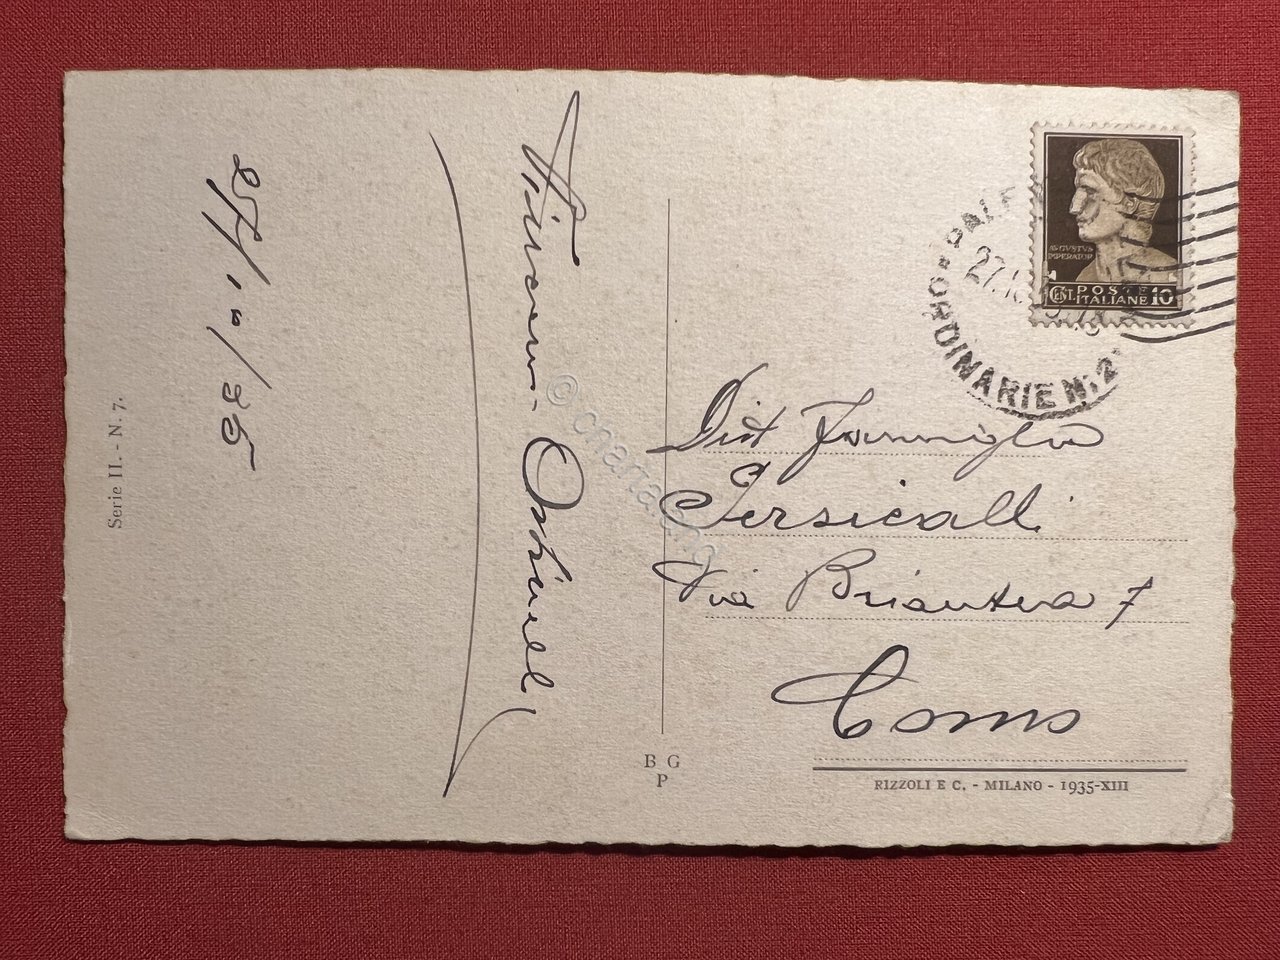 27/10/35
Serie II. - N. 7.
AUGUSTUS
IMPERATOR
CENT. POSTE ITALIANE 10
ORDINARIE N. 2
27.10
Dist Famiglia
Persicalli
Via Briantea 7
Como
B G
P
RIZZOLI E C. - MILANO - 1935-XIII
© charta.org